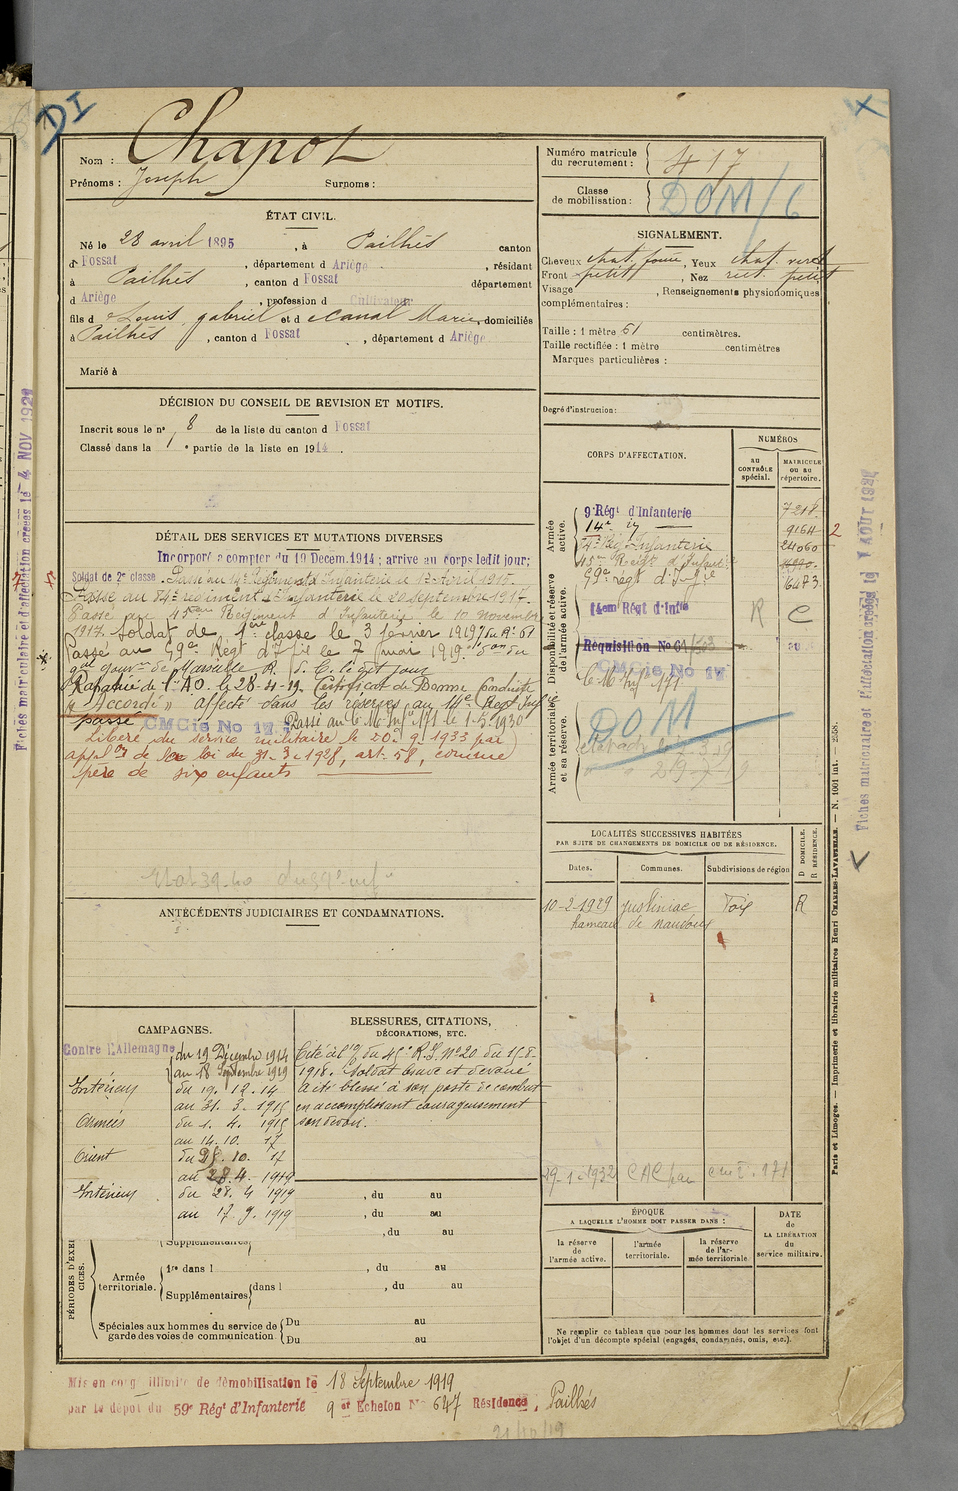 DI
Nom : Chapot
Prénoms : Joseph Surnoms :
ÉTAT CIVIL.
Né le 28 avril 1895, à Pailhès canton
d Fossat, département d Ariège, résidant
à Pailhès, canton d Fossat département
d Ariège, profession d Cultivateur
fils d Louis gabriel et d Canal Marie, domiciliés
à Pailhès, canton d Fossat, département d Ariège
Marié à
DÉCISION DU CONSEIL DE REVISION ET MOTIFS.
Inscrit sous le n° 8 de la liste du canton d Fossat
Classé dans la 1e partie de la liste en 1914.
DÉTAIL DES SERVICES ET MUTATIONS DIVERSES
Incorporé à compter du 19 Décem. 1914; arrivé au corps ledit jour;
Soldat de 2e classe. Passé au 14e Régiment d'Infanterie le 1er Avril 1915.
Passé au régiment d'Infanterie le 20 Septembre 1917.
Passé au 45eme Régiment d'Infanterie le Novembre
1917. Soldat de 1ère classe le 3 février 1919
Passé au 59e Regt d'Inf le 7 mai 1919.
gal gouvr de Marseille
Rapatrié de l'A.O. le 28-4-19. Certificat de Bonne Conduite
"Accordé" affecté dans les réserves au 14e Regt Inf
passé CM Cie No 17. Passé au C. M. Inf 171 le 1-5-1930
Libéré du service militaire le 20-9-1933 par
applon de la loi du 31-3-1928, art. 58, comme
père de six enfants
Etat 39-40 du 59e inf
ANTÉCÉDENTS JUDICIAIRES ET CONDAMNATIONS.
CAMPAGNES.
Contre l'Allemagne du 19 Décembre 1914
au 18 Septembre 1919
Intérieur du 19. 12. 14
au 31. 3. 1915
Armées du 1. 4. 1915
au 14. 10. 17
Orient du 15. 10. 17
au 28. 4. 1919
Intérieur du 28. 4 1919
au 17. 9. 1919
BLESSURES, CITATIONS,
DÉCORATIONS, ETC.
Cité à l'O/ du 45e R.I. N° 20 du 15-8-
1918. Soldat brave et dévoué
a été blessé à son poste de combat
en accomplissant courageusement
son devoir.
, du au
, du au
, du au
PÉRIODES D'EXERCICES.
Supplémentaires
Armée territoriale.
1re dans l , du au
Supplémentaires dans l , du au
Spéciales aux hommes du service de garde des voies de communication.
Du au
Du au
Numéro matricule du recrutement : 417
Classe de mobilisation : DOM/6
SIGNALEMENT.
Cheveux chat. foncé, Yeux chat. verdt
Front petit, Nez rect. petit
Visage , Renseignements physionomiques
complémentaires :
Taille : 1 mètre 61 centimètres.
Taille rectifiée : 1 mètre centimètres
Marques particulières :
Degré d'instruction :
CORPS D'AFFECTATION.
NUMÉROS
AU CONTRÔLE spécial.
MATRICULE OU AU répertoire.
Armée active.
9e Régt d'Infanterie 7218
14e 9164 2
Regt Infanterie 24060
45e Regt d'Infanterie
59e regt d'Infie 16473
Disponibilité et réserve de l'armée active.
14em Régt d'Infie R C
Réquisition No 61
CM Cie No 17
C. M. Inf 171
Armée territoriale et sa réserve.
DOM
LOCALITÉS SUCCESSIVES HABITÉES
PAR SUITE DE CHANGEMENTS DE DOMICILE OU DE RÉSIDENCE.
Dates. Communes. Subdivisions de région
D DOMICILE.
R RÉSIDENCE.
10-2-1929 Justiniac Foix R
hameau de
29-1-1932 CAC par C.M.I. 171
ÉPOQUE
A LAQUELLE L'HOMME DOIT PASSER DANS :
la réserve de l'armée active.
l'armée territoriale.
la réserve de l'armée territoriale
DATE
de
LA LIBÉRATION
du
service militaire.
Ne remplir ce tableau que pour les hommes dont les services font
l'objet d'un décompte spécial (engagés, condamnés, omis, etc.).
Mis en cong. illimité de démobilisation le 18 Septembre 1919
par le dépôt du 59e Régt d'Infanterie 9 et Echelon No 647 Résidence, Pailhès
Paris et Limoges. — Imprimerie et librairie militaires Henri CHARLES-LAVAUZELLE. — N. 1001 int. — 258.
Fiches matriculaire et d'affectation créées le 4 NOV 1929
Fiches matriculaire et d'affectation créées le